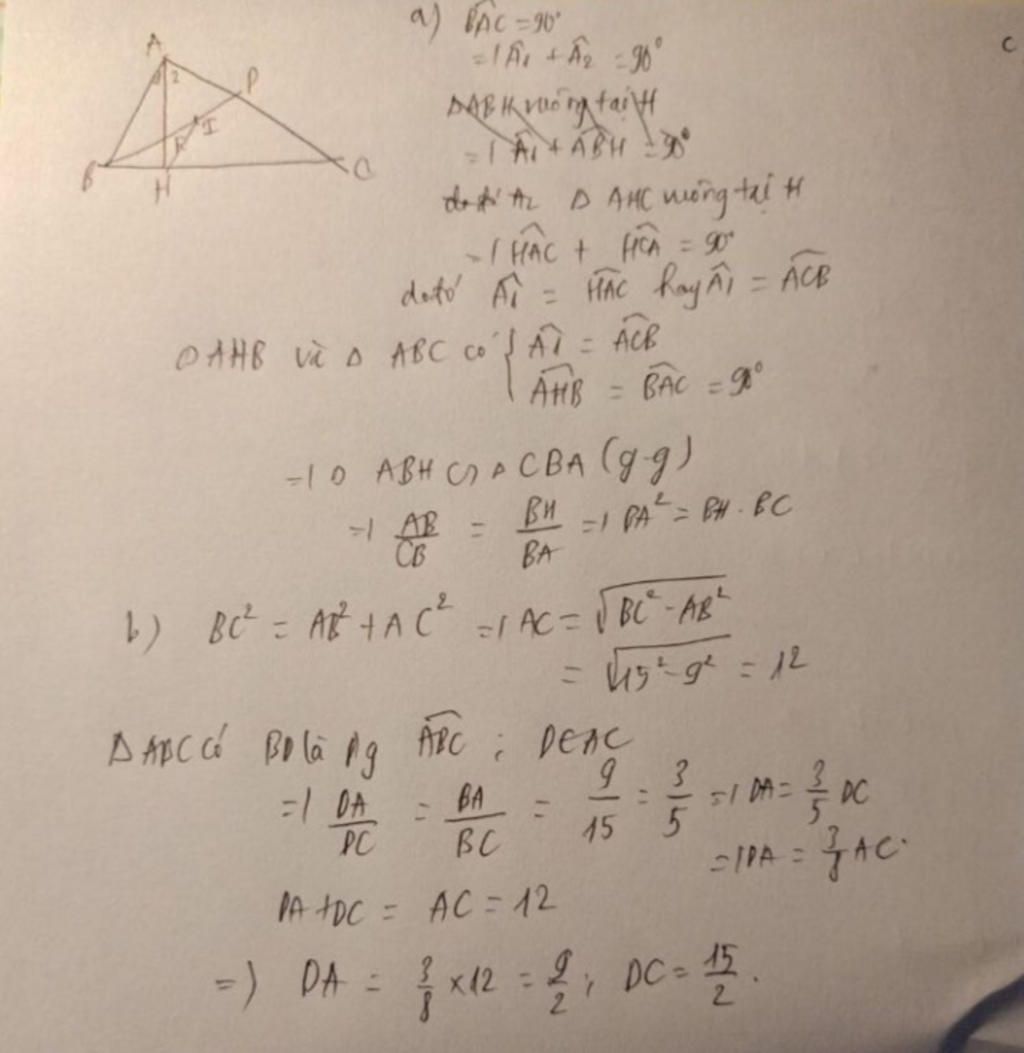 a) BAC = 90°
=> Â1 + Â2 = 90°
ΔABH vuông tại H
=> Â1 + ABH = 90°
do đó A2 Δ AHC vuông tại H
=> HAC + HCA = 90°
do đó Â1 = HAC hay Â1 = ACB
Δ AHB và Δ ABC có { Â1 = ACB
AHB = BAC = 90°
=> Δ ABH ∽ Δ CBA (g-g)
=> AB/CB = BH/BA => BA² = BH . BC
b) BC² = AB² + AC² => AC = √(BC² - AB²)
= √(15² - 9²) = 12
Δ ABC có BD là pg ABC ; D∈AC
=> DA/DC = BA/BC = 9/15 = 3/5 => DA = 3/5 DC
=> DA = 3/8 AC.
DA + DC = AC = 12
=> DA = 3/8 x 12 = 9/2 ; DC = 15/2 .
A
1 2
P
I
K
B
H
C
c